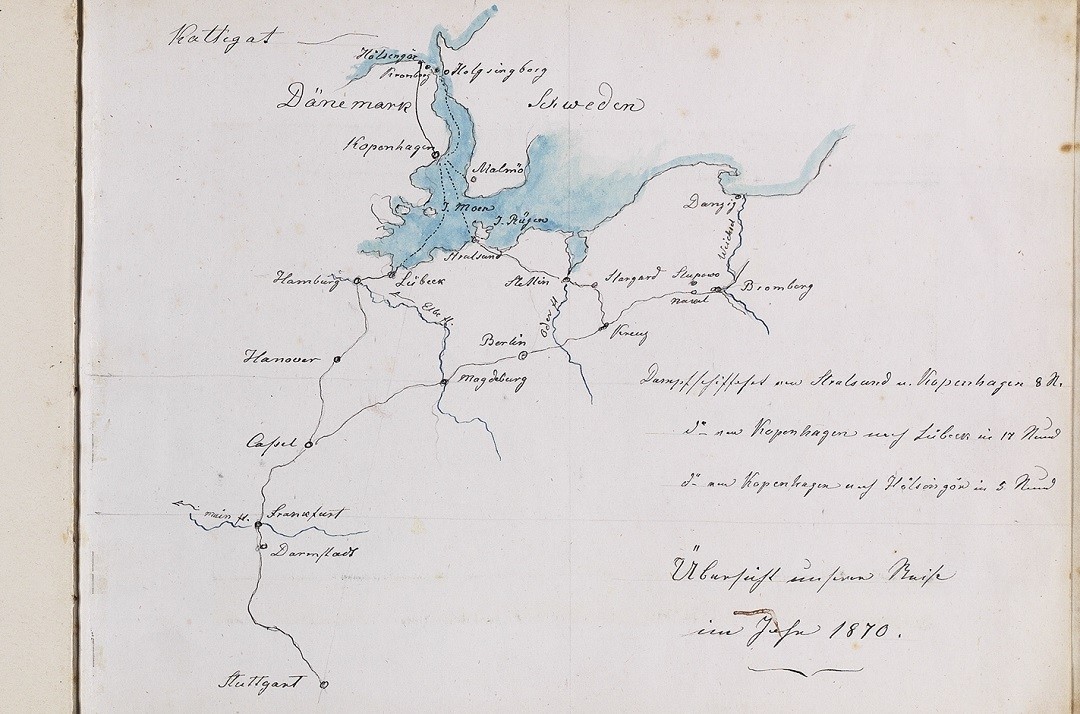 Kattigat
Hölsengör
Kronborg
Helgsingborg
Dänemark
Schweden
Kopenhagen
Malmö
J. Moen
J. Rügen
Danzig
Weichsel
Stralsund
Hamburg
Lübeck
Stettin
Stargard
Stupowo
Nakel
Bromberg
Elbe fl.
Oder fl.
Kreuz
Berlin
Hanover
Magdeburg
Dampfschiffahrt von Stralsund n. Kopenhagen 8 St.
dº von Kopenhagen nach Lübeck in 17 Stund
dº von Kopenhagen nach Hölsingör in 5 Stund
Cassel
main fl.
Frankfurt
Darmstadt
Übersicht unserer Reise
im Jahr 1870.
Stuttgart